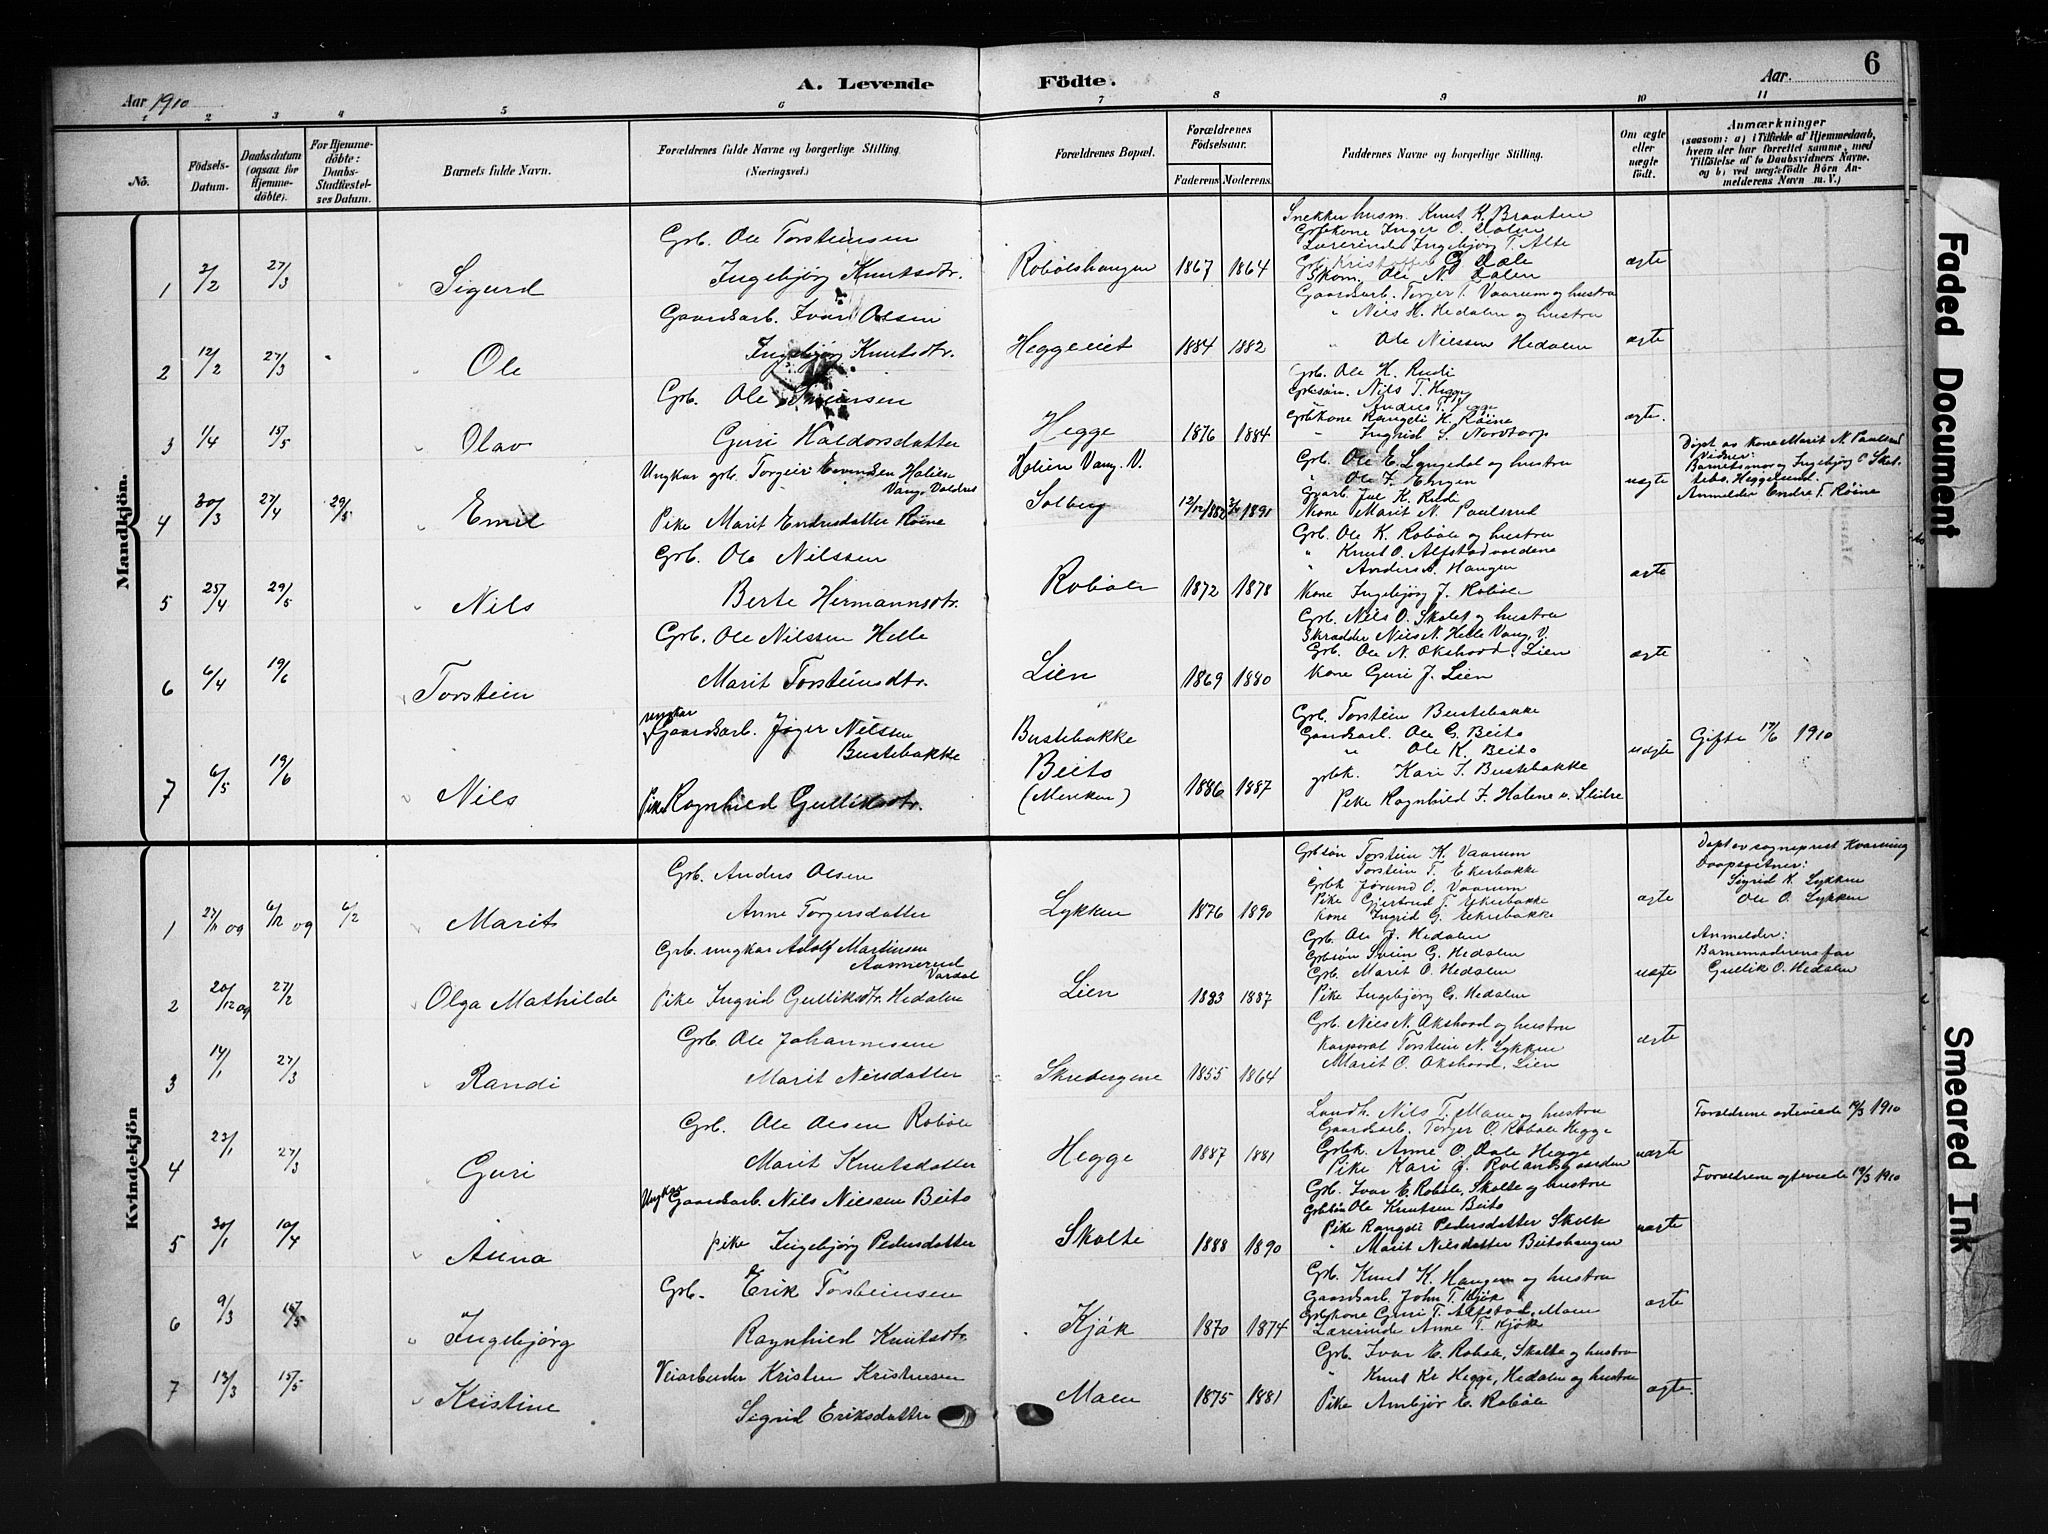 6
A. Levende Födte.
Aar 1910 Aar.
1 2 3 4 5 6 7 8 9 10 11
No.
Födsels-Datum.
Daabsdatum (ogsaa for Hjemmedöbte).
For Hjemmedöbte: Daabs-Stadfæstelses Datum.
Barnets fulde Navn.
Forældrenes fulde Navne og borgerlige Stilling. (Næringsvei.)
Forældrenes Bopæl.
Forældrenes Födselsaar. Faderens Moderens.
Faddernes Navne og borgerlige Stilling.
Om ægte eller uægte födt.
Anmærkninger (saasom: a) i Tilfælde af Hjemmedaab, hvem der har forrettet samme, med Tilföielse af to Daabsvidners Navne, og b) ved uægtefödte Börn Anmelderens Navn m. V.)
Mandkjön.
Grb. Ole Torsteinsen
Snekker husm. Knut K. Braaten
Grbkone Inger O.
Lærerinde Ingebjørg T. Alte
1 2/2 27/3 Sigurd Ingebjørg Knutsdtr. Robølshaugen 1867 1864 ægte
Grb. Kristoffer G.
Skom. Ole N. Dalen
Gaardsarb. Ivar Olsen
Gaardsarb. Torger T. Vaarum og hustru
" Nils K. Hedalen og hustru
2 12/2 27/3 Ole Ingebjørg Knutsdtr. Heggeeiet 1884 1882 " Ole Nilssen Hedalen ægte
Grb. Ole
Grb. Ole K. Rudi
Grbsøn. Nils T. Hegge
Anders T. Hegge
3 1/4 15/5 Olav Guri Haldorsdatter Hegge 1876 1884 Grbkone Rangdi K. Røine ægte.
" Ingrid S. Nordtorp
Ungkar grb. Torgeir Eivindsen Holien Vang, Valdres Holien Vang. V.
Grb. Ole E. Langedal og hustru
" Ole J.
4 30/3 27/4 29/5 Emil Pike Marit Endresdatter Røine Solberg 12/12 1882 1891 uægte
Gaarb. Jul K. Rudi
Kone Marit N. Paulsrud
Døpt av kone Marit N. Paulsrud
Vidner:
Barnets mor og Ingebjørg O
Heggelund.
Anmelder Endre T. Røine
Grb. Ole Nilssen
Grb. Ole K. Robøle og hustru
" Knut O. Alfstad
" Anders A. Haugen
5 25/4 29/5 Nils Berte Hermannsdtr. Robøle 1872 1878 Kone Ingebjørg J. Robøle ægte
Grb. Ole Nilssen Helle
Grb. Nils O. Skolet og hustru
Skrædder Nils N. Helle Vang, V.
Grb. Ole N. Okshovd, Lien
6 6/4 19/6 Torstein Marit Torsteinsdtr. Lien 1869 1880 Kone Guri J. Lien ægte
ungkar Gaardsarb. Jøger Nilssen Bustebakke Bustebakke
Grb. Torstein Bustebakke
Gaardsarb. Ole G. Beito
" Ole K. Beito
7 6/5 19/6 Nils Pike Ragnhild Gulliksdtr. Beito (Merken) 1886 1887 uægte Gifte 17/6 1910
grbk. Kari T. Bustebakke
Pike Ragnhild F. Halene v. Slidre
Kvindekjön
Grb. Anders Olsen
Grbsøn Torstein K. Vaarum
" Torstein T. Ekerbakke
Grbk Jørund O. Vaarum
1 27/11 09 6/12 09 6/2 Marit Anne Torgersdatter Lykken 1876 1890 ægte
Pike Gjertrud T. Ekerbakke
Kone Ingrid G. Ekerbakke
Døpt av sogneprest Kvarving
Daapsvitner:
Sigrid K. Lykken
Ole O. Lykken
Grb. ungkar Adolf Martinsen
Vardal
Grb. Ole J. Hedalen
Grbsøn Svein G. Hedalen
Grb. Marit O. Hedalen
2 20/12 09 27/2 Olga Mathilde Pike Ingrid Gulliksdtr. Hedalen Lien 1883 1887 Pike Ingebjørg G. Hedalen uægte
Anmelder:
Barnemoderens far
Gullik O. Hedalen
Grb. Ole Johannessen
Grb. Nils N. Okshovd og hustru
Korporal Torstein N. Lykken
3 14/1 27/3 Randi Marit Nilsdatter Skrebergene 1855 1864 Marit O. Okshovd, Lien ægte
Grb. Ole Olsen Robøle
Landh. Nils T. Moen og hustru
Gaardsarb. Torger O. Robøle Hegge
4 23/1 27/3 Guri Marit Knutsdatter Hegge 1887 1881 Grbk. Anne O. Dale Hegge uægte
Pike Kari O. Rolandsgaarden
Forældrene egteviede 19/3 1910
Ungkar Gaardsarb. Nils Nilssen Beito
Grb. Ivar E. Robøle, Skolte og hustru
Grbsøn Ole Knutsen Beito
5 30/1 10/4 Anna pike Ingebjørg Pedersdatter Skolte 1888 1890 Pike Rangdi Pedersdatter Skolte uægte
" Marit Nilsdatter Beitohaugen
Forældrene egteviede 19/3 1910
Grb. Erik Torsteinsen
Grb. Knut K. Haugen og hustru
Gaardsarb. John T. Kjøk
6 9/3 15/5 Ingebjørg Ragnhild Knutsdtr. Kjøk 1870 1874 Grbkone Guri T. Alfstad, Moen ægte
Lærerinde Anne T. Kjøk
Veiarbeider Kristen Kristensen
Grb. Ivar E. Robøle, Skolte og hustru
" Knut K. Hegge, Hedalen og hustru
7 13/3 15/5 Kristine Sigrid Eriksdatter Moen 1875 1881 Pike Ambjør E. Robøle ægte.
Faded Document
Smeared Ink